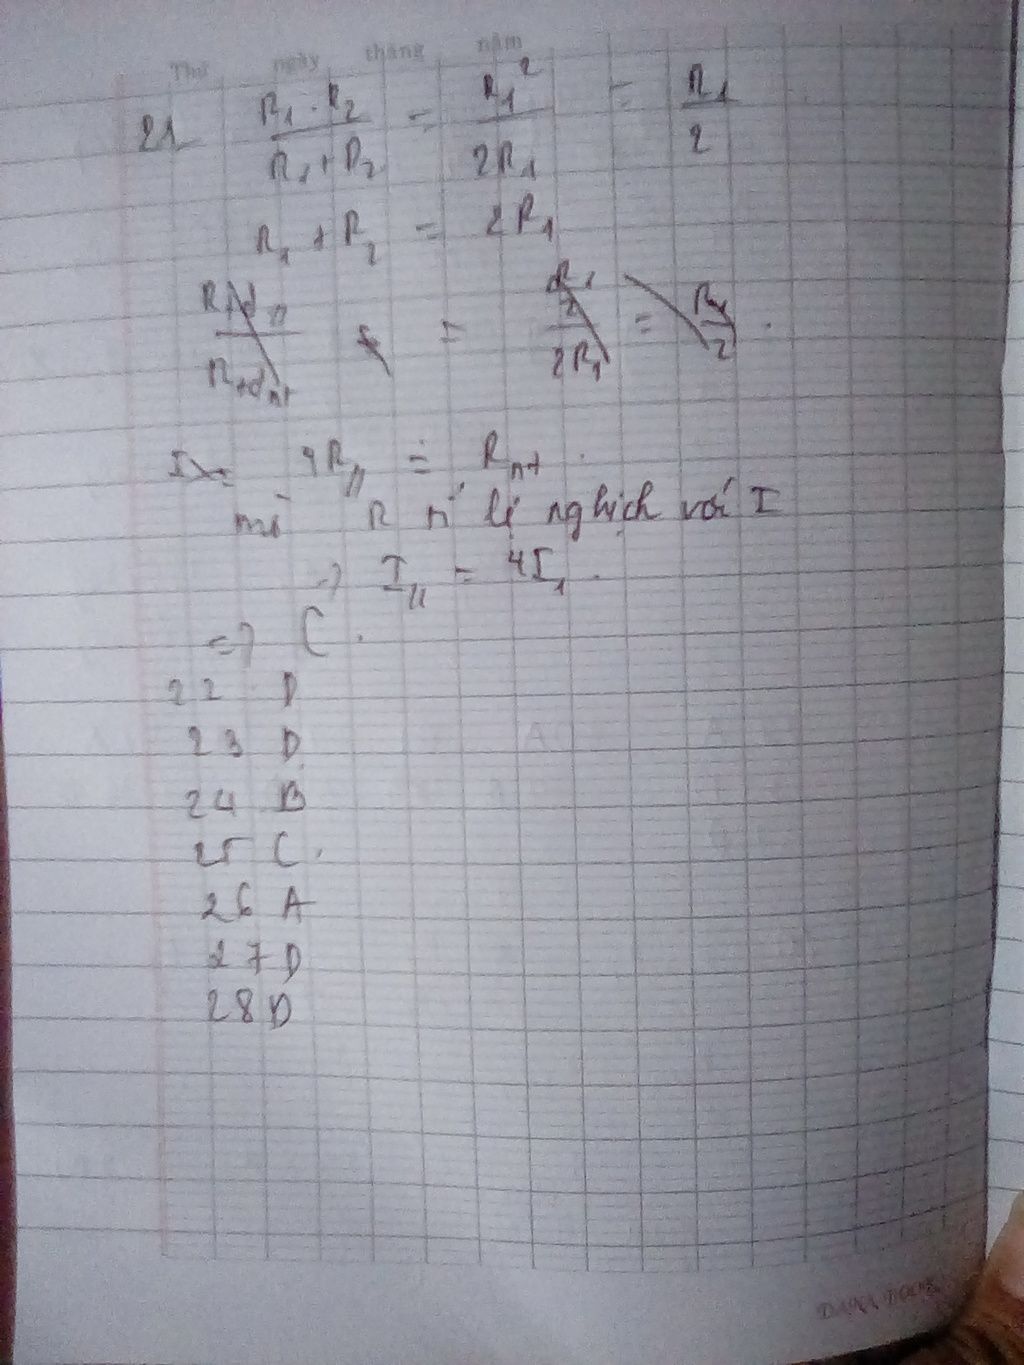 Thứ ngày tháng năm
21 R₁ . R₂ / R₁ + R₂ = R₁² / 2R₁ = R₁ / 2
R₁ + R₂ = 2R₁
4R// = Rnt .
mà R tỉ lệ nghịch với I
=> I// = 4I₁ .
=> C .
22 D
23 D
24 B
25 C .
26 A
27 D
28 D